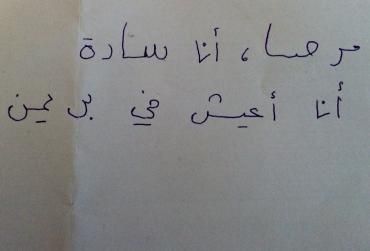 مرحبا، أنا سادة
أنا أعيش في بريمين